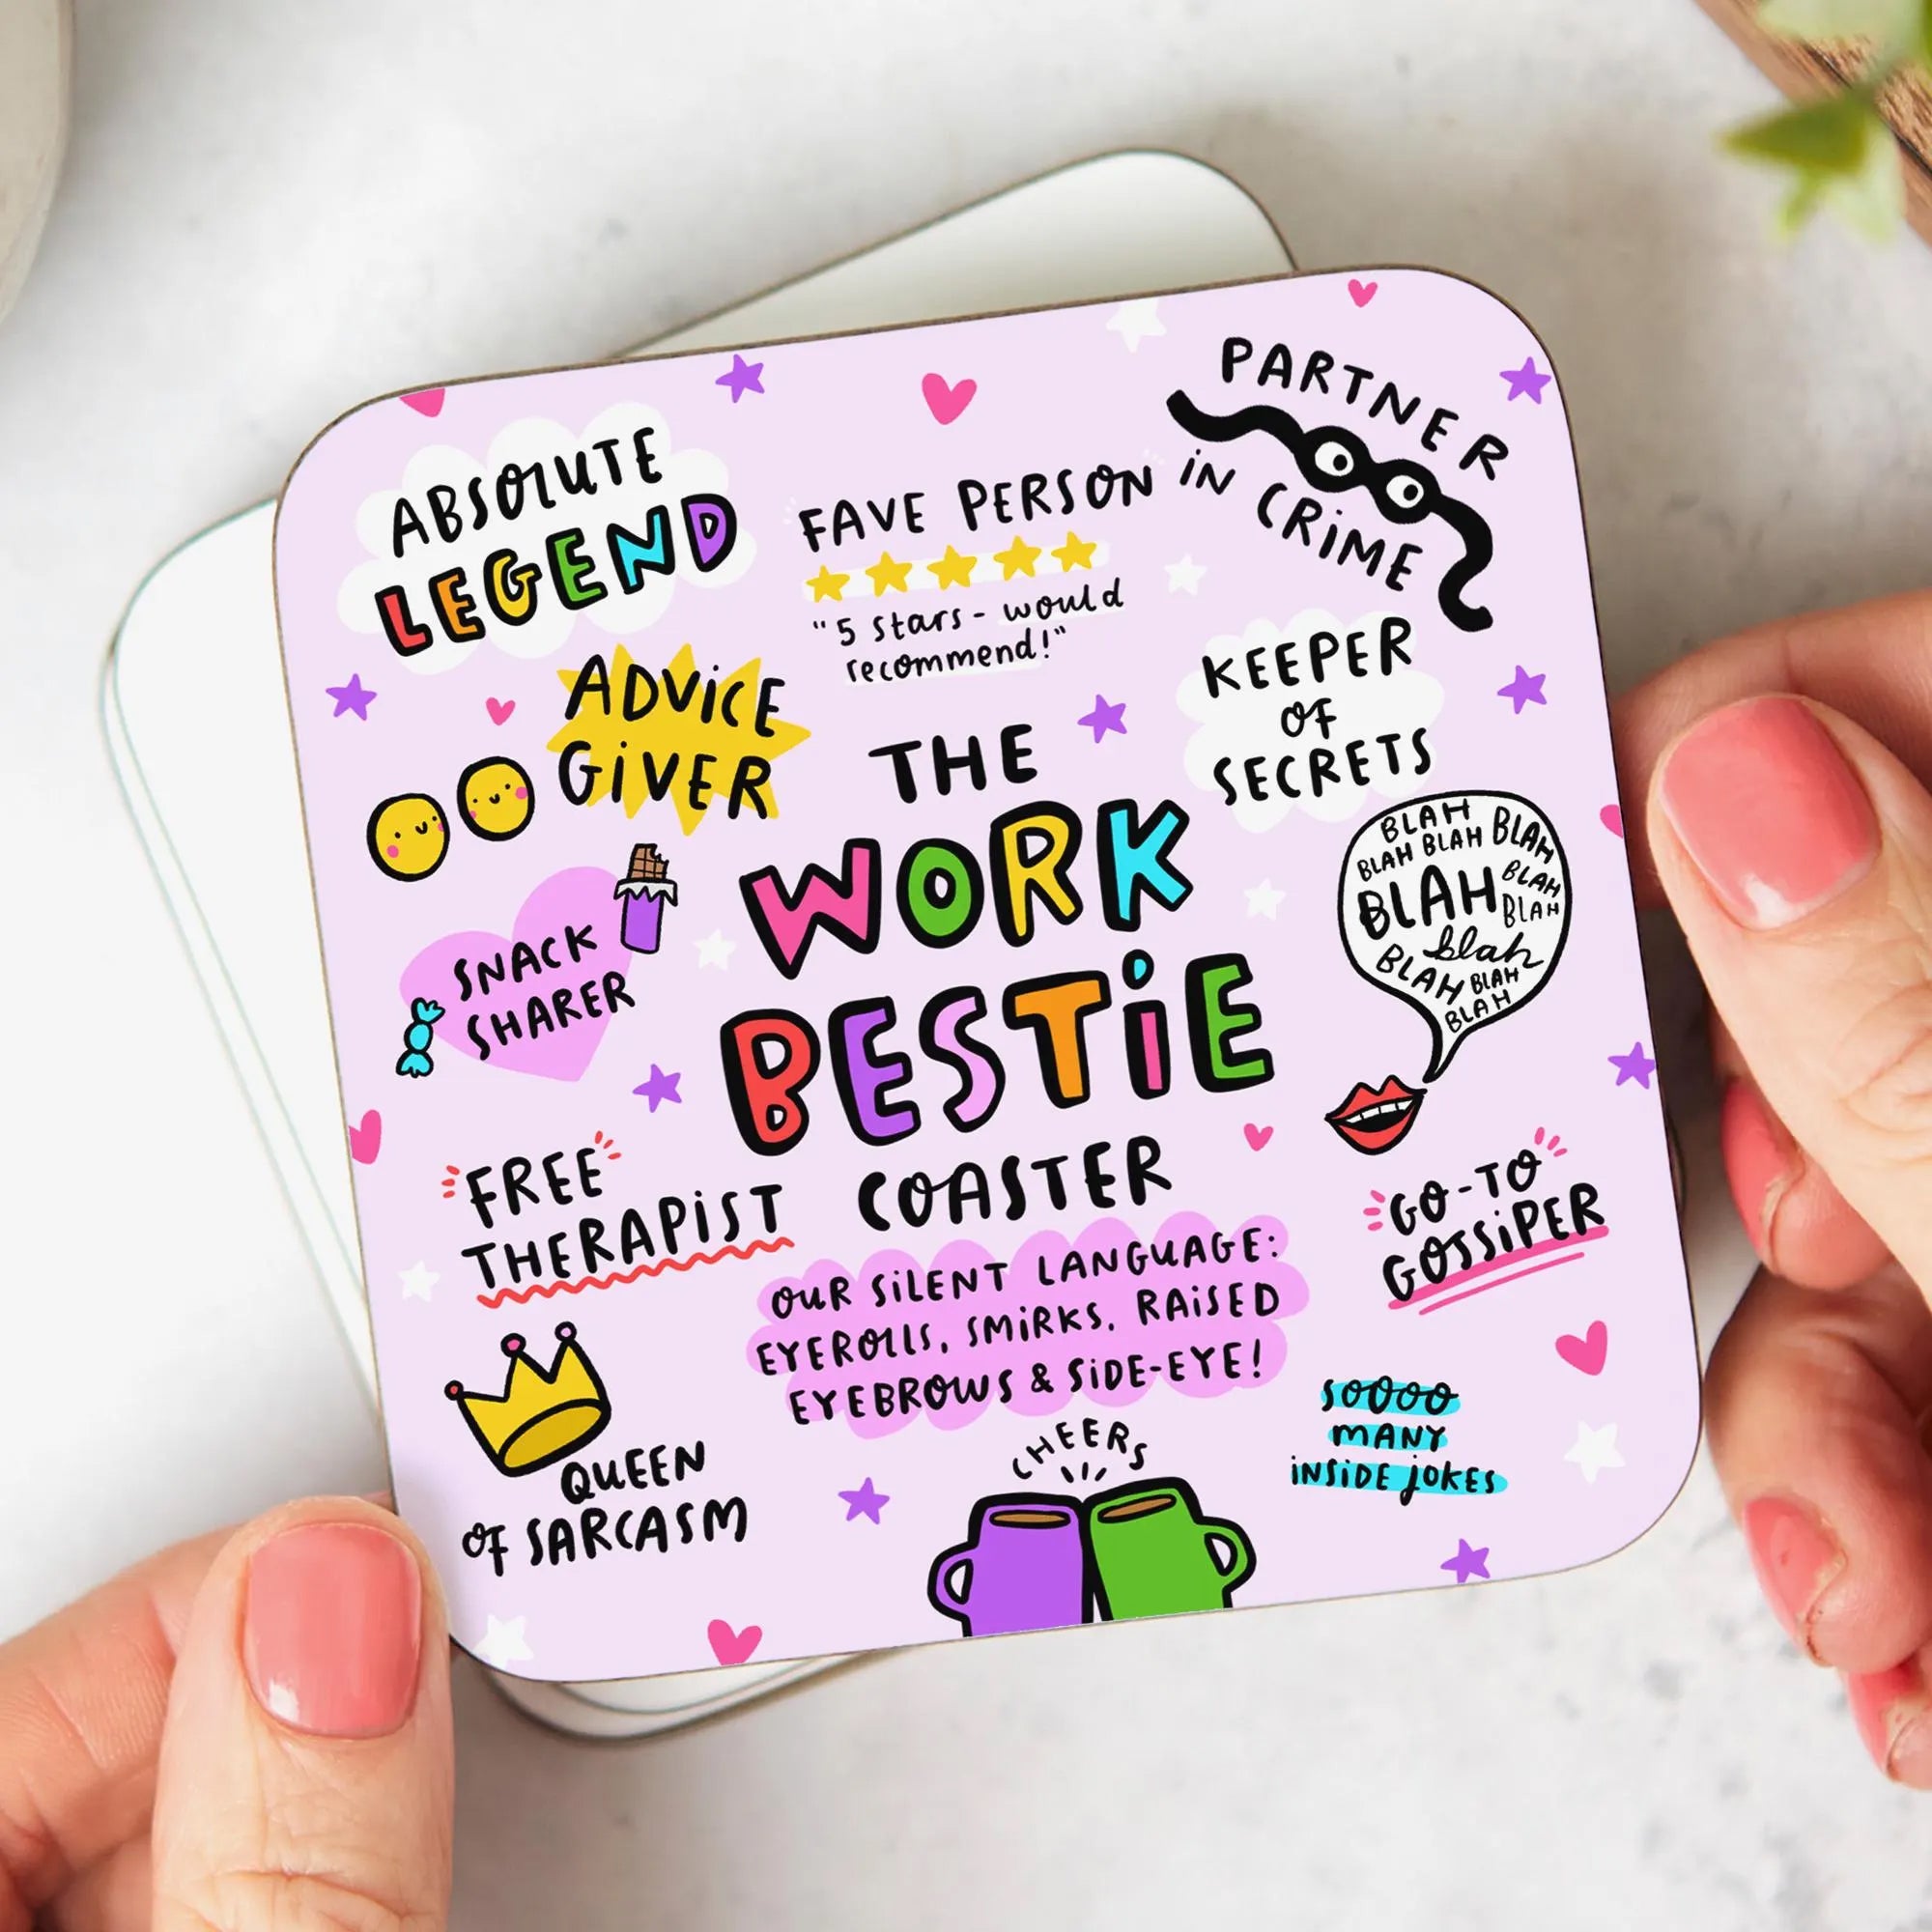 ABSOLUTE
LEGEND
FAVE PERSON
"5 stars - would
recommend!"
PARTNER
iN CRiME
ADViCE
GiVER
KEEPER
OF
SECRETS
THE
WORK
BESTiE
COASTER
SNACK
SHARER
BLAH
BLAH BLAH BLAH
BLAH BLAH
BLAH
blah
BLAH BLAH
BLAH
FREE
THERAPiST
GO-TO
GOSSiPER
OUR SiLENT LANGUAGE:
EYEROLLS, SMiRKS, RAiSED
EYEBROWS & SiDE-EYE!
QUEEN
OF SARCASM
CHEERS
SOOOO
MANY
iNSiDE jOKES